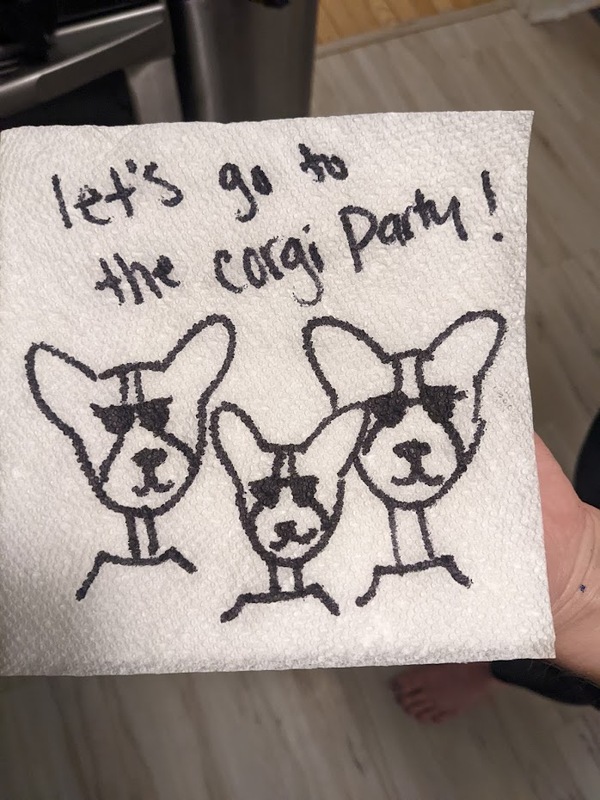 let's go to
the corgi party!